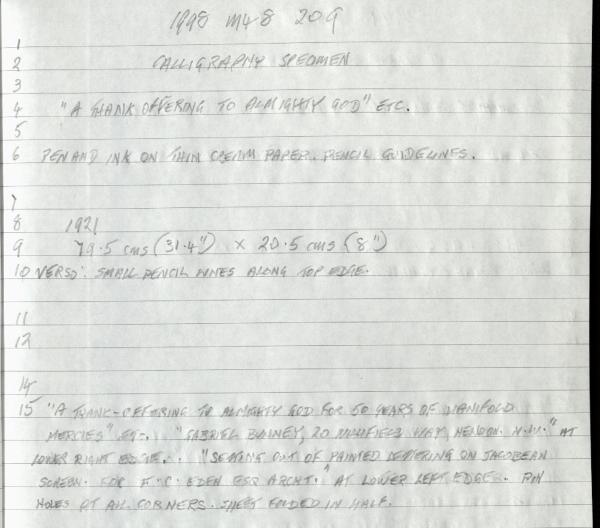 1998 M48 209
1
2 CALLIGRAPHY SPECIMEN
3
4 "A THANK OFFERING TO ALMIGHTY GOD" ETC.
5
6 PEN AND INK ON THIN CREAM PAPER. PENCIL GUIDELINES.
7
8 1921
9 79.5 cms (31.4") x 20.5 cms (8")
10 VERSO: SMALL PENCIL LINES ALONG TOP EDGE.
11
12
14
15 "A THANK-OFFERING TO ALMIGHTY GOD FOR 50 YEARS OF MANIFOLD
MERCIES" ETC. "GABRIEL BUNNEY, 20 WAY, HENDON. N.W." AT
LOWER RIGHT EDGE. "SETTING OUT OF PAINTED LETTERING ON JACOBEAN
SCREEN. FOR F.C. EDEN ESQ ARCHT." AT LOWER LEFT EDGE. PIN
HOLES AT ALL CORNERS. SHEET FOLDED IN HALF.